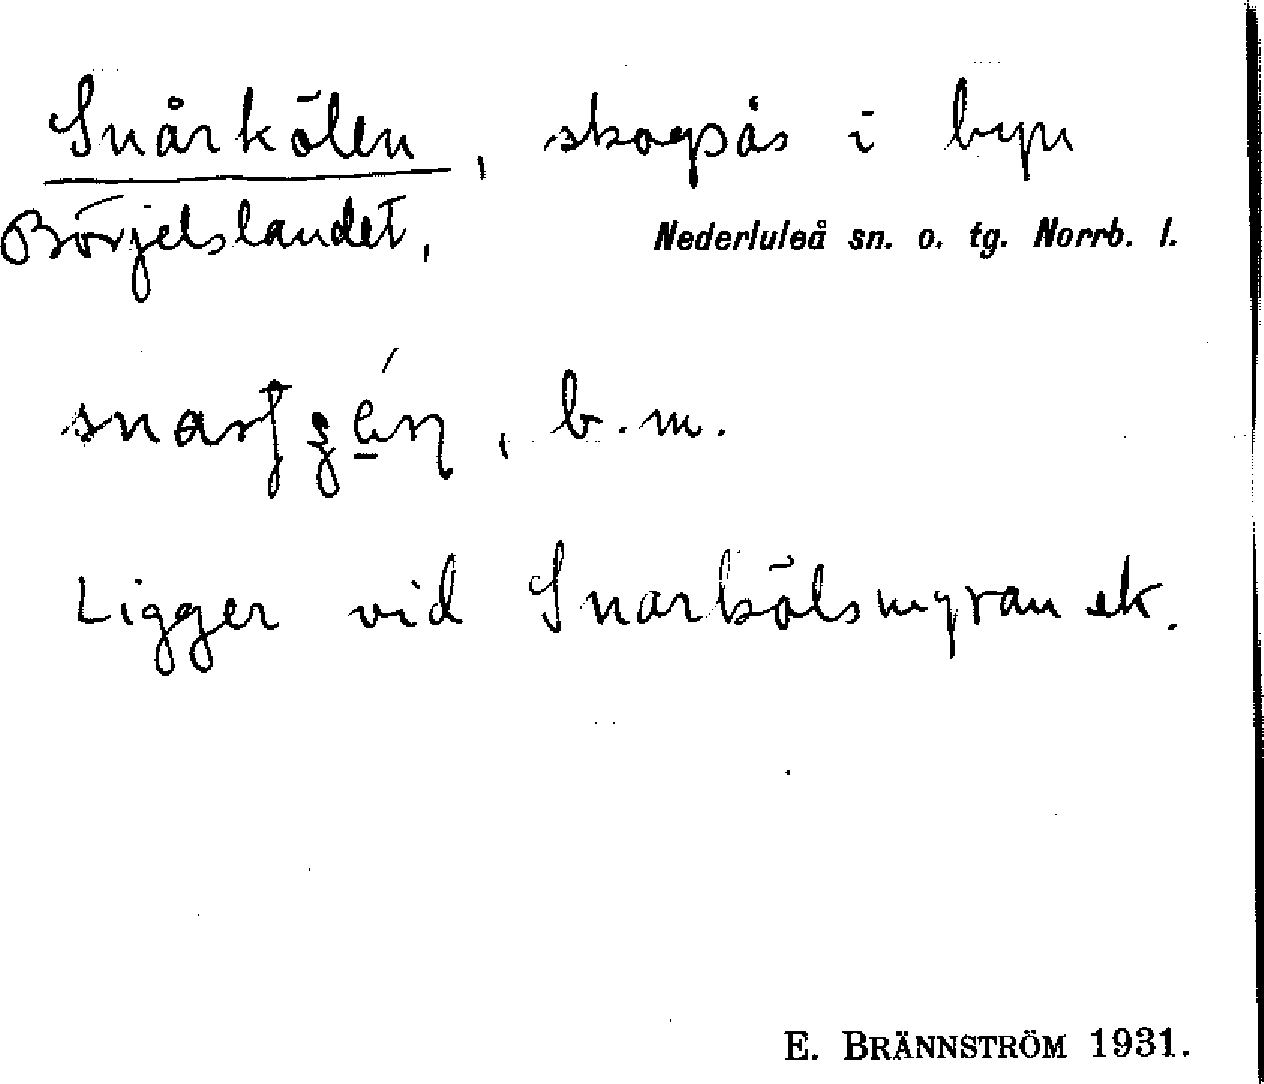 Snårkölen, skogsås i byn
Börjelslandet, Nederluleå sn. o. tg. Norrb. l.
b. m.
Ligger vid Snarkölsmyran etc.
E. BRÄNNSTRÖM 1931.